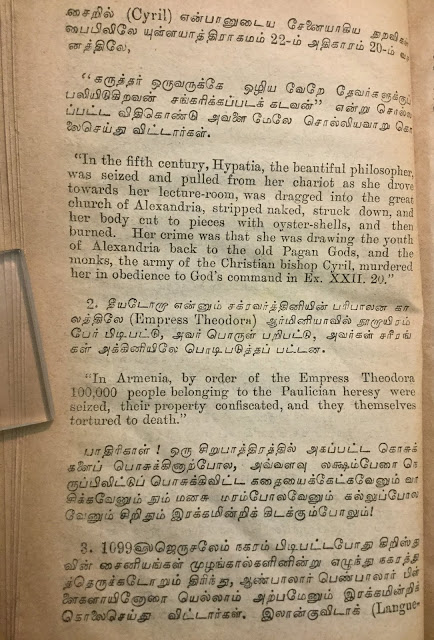 சைரில் (Cyril) என்பானுடைய சேனையாகிய துறவிகள்
பைபிலிலே யுள்ளயாத்திராகமம் 22-ம் அதிகாரம் 20-ம் வச
னத்திலே,
“கருத்தர் ஒருவருக்கே ஒழிய வேறே தேவர்களுக்குப்
பலியிடுகிறவன் சங்கரிக்கப்படக் கடவன்” என்று சொல்ல
ப்பட்ட விதிகொண்டு அவளை மேலே சொல்லியவாறு கொ
லைசெய்து விட்டார்கள்.
“In the fifth century, Hypatia, the beautiful philosopher,
was seized and pulled from her chariot as she drove
towards her lecture-room, was dragged into the great
church of Alexandria, stripped naked, struck down, and
her body cut to pieces with oyster-shells, and then
burned. Her crime was that she was drawing the youth
of Alexandria back to the old Pagan Gods, and the
monks, the army of the Christian bishop Cyril, murdered
her in obedience to God's command in Ex. XXII. 20.”
2. தியடோரா என்னும் சக்ரவர்த்தினியின் பரிபாலன கா
லத்திலே (Empress Theodora) ஆர்மினியாவில் நூறாயிரம்
பேர் பிடிபட்டு, அவர் பொருள் பறிபட்டு, அவர்கள் சரீரங்
கள் அக்கினியிலே பொடிபடுத்தப் பட்டன.
“In Armenia, by order of the Empress Theodora
100,000 people belonging to the Paulician heresy were
seized, their property confiscated, and they themselves
tortured to death.”
பாதிரிகாள்! ஒரு சிறுபாத்திரத்தில் அகப்பட்ட கொசுக்
களைப் பொசுக்கினாற்போல, அவ்வளவு லக்ஷம்பேரை நெ
ருப்பிலிட்டுப் பொசுக்கிவிட்ட கதையைக்கேட்கவேனும் வா
சிக்கவேனும் நம் மனசு மரம்போலவேனும் கல்லுப்போல
வேனும் சிறிதும் இரக்கமின்றிக் கிடக்கும்போலும்!
3. 1099௵ ஜெருசலேம் நகரம் பிடிபட்டபோது கிறிஸ்து
வின் சைனியங்கள் முழங்கால்களினின்று எழுந்து நகரத்து
த்தெருக்கடோறும் திரிந்து, ஆண்பாலார் பெண்பாலார் பிள்
ளைகளாயினோரை யெல்லாம் அற்பமேனும் இரக்கமின்றிக்
கொலைசெய்து விட்டார்கள். இலான்குவிடாக் (Langue-